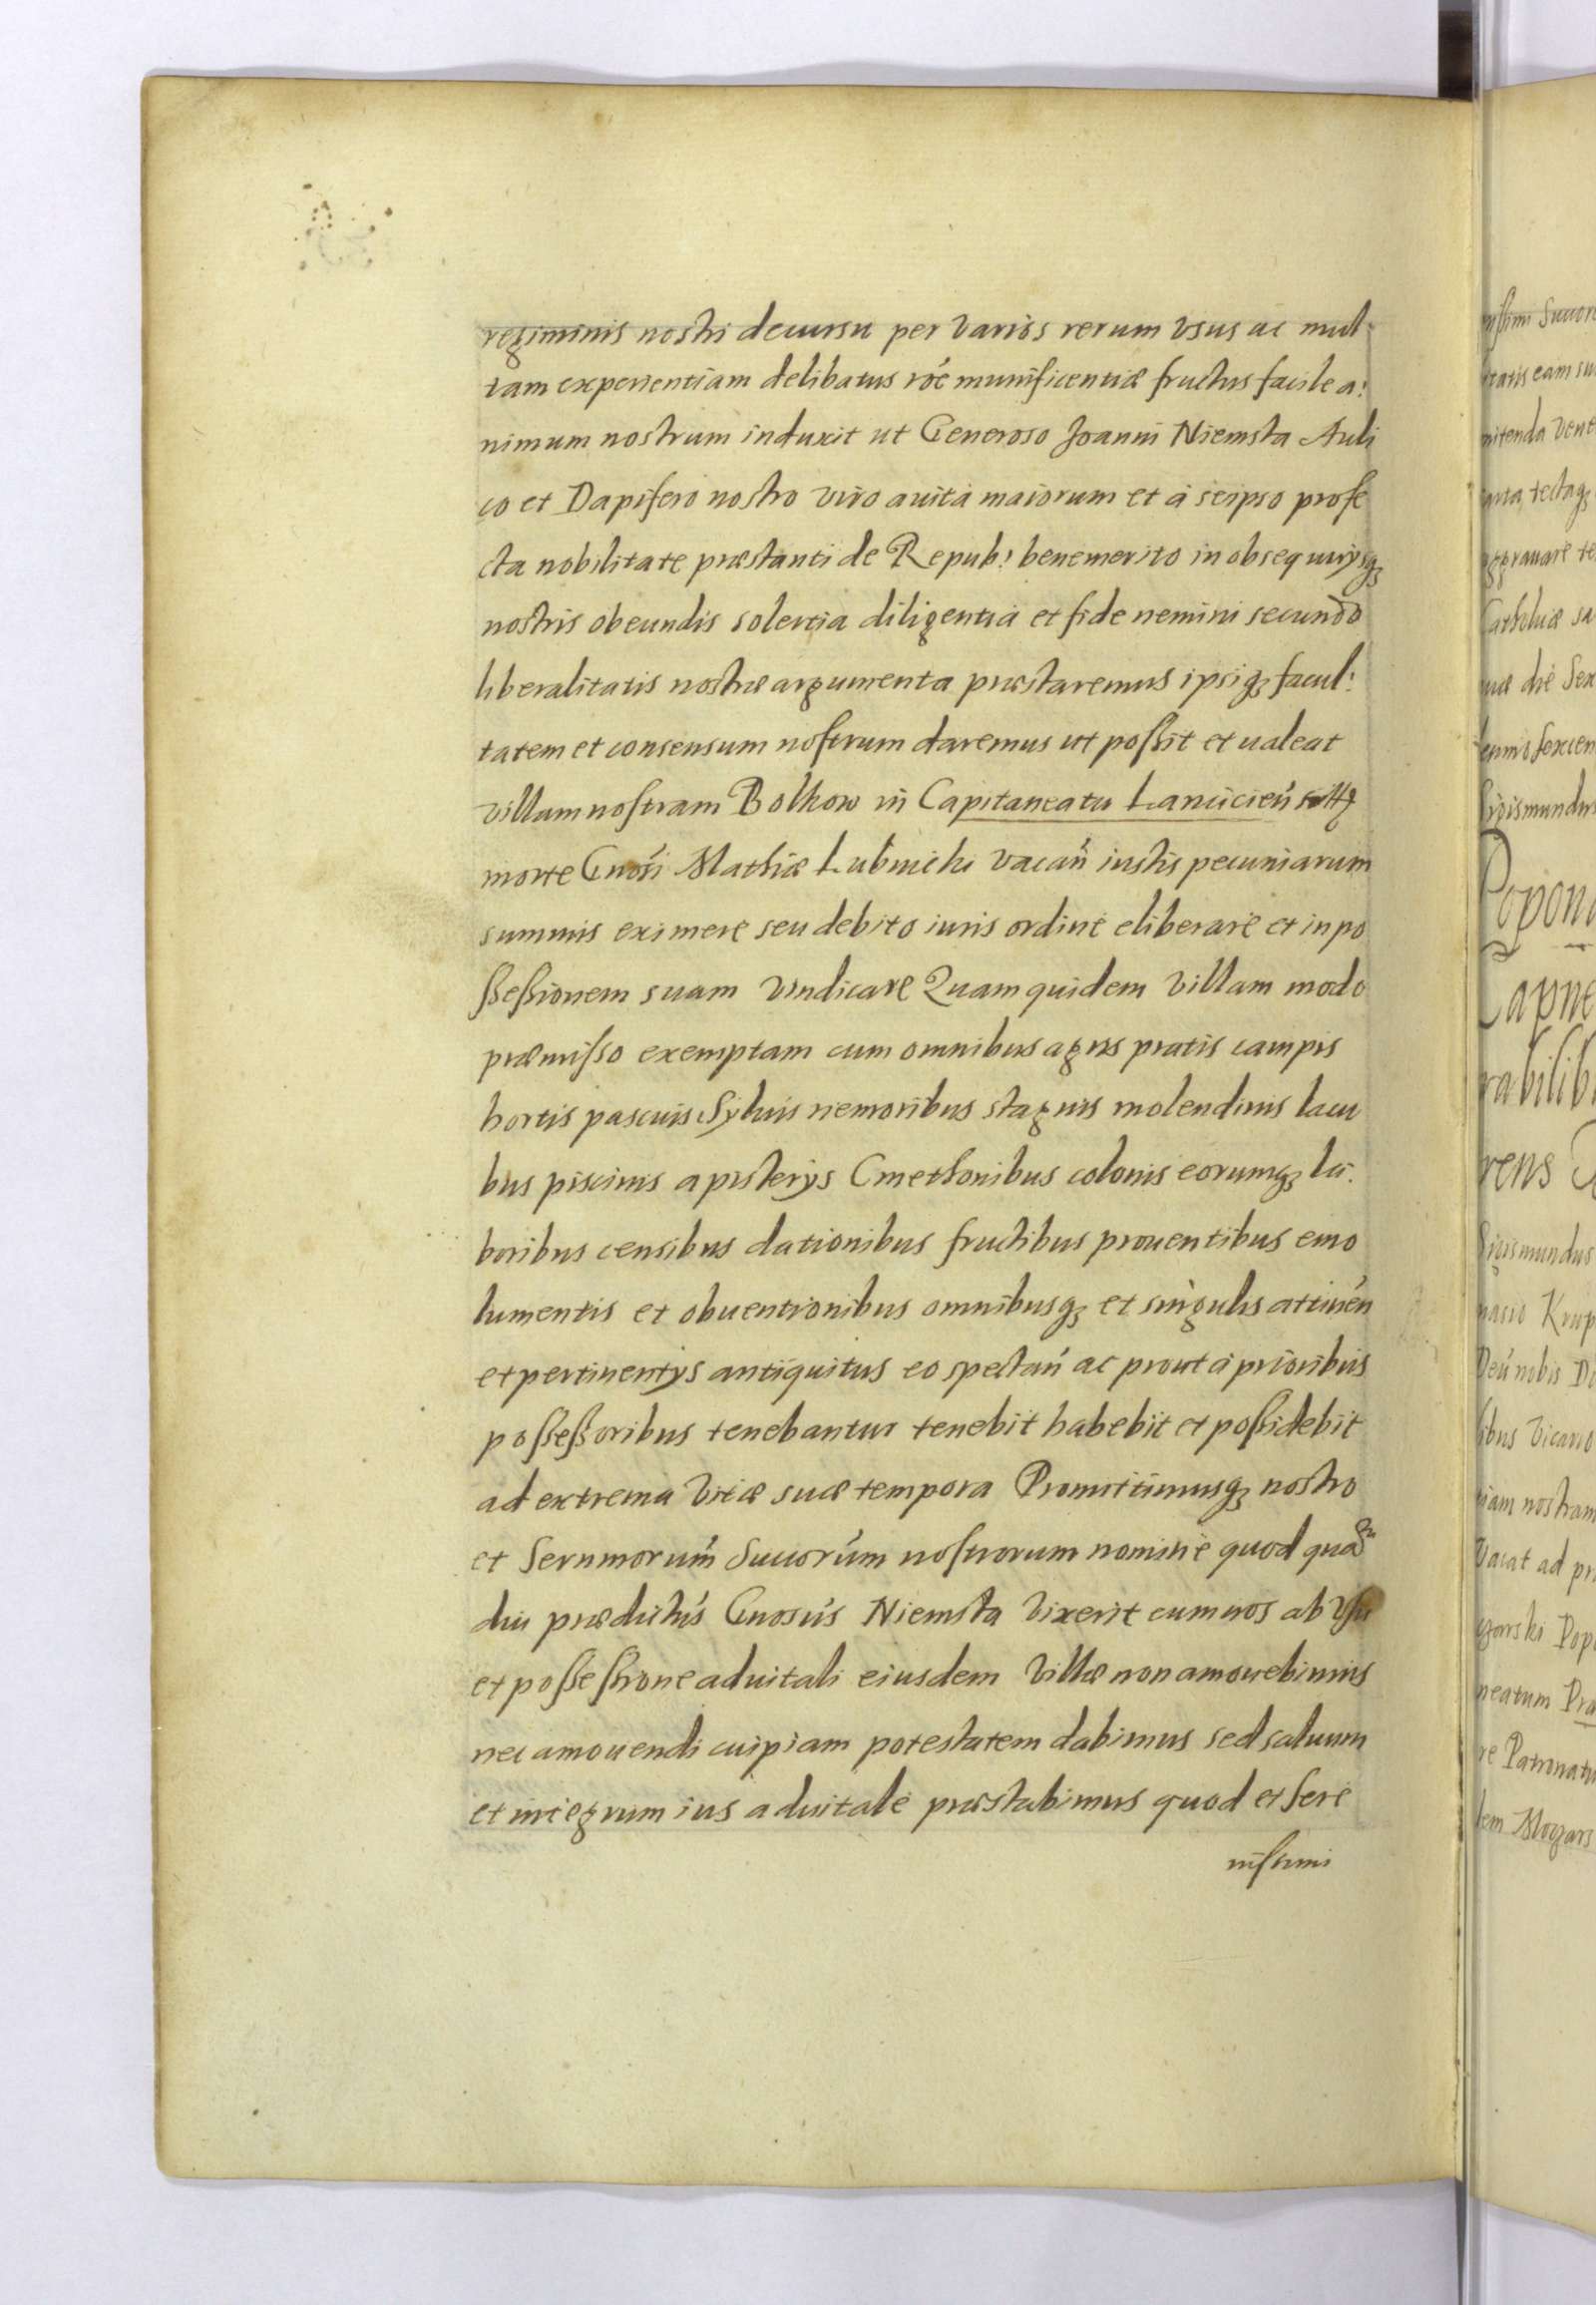 regiminis nostri decursu per varios rerum vsus ac mul
tam experientiam delibatus róe munificentiæ fructus facile a:
nimum nostrum induxit ut Generoso Joanni Niemsta Auli
co et Dapifero nostro viro auita maiorum et à seipso profe
cta nobilitate præstanti de Repub: benemerito in obsequiysqȝ
nostris obeundis solertia diligentia et fide nemini secundo
liberalitatis nostræ argumenta præstaremus ipsiqȝ facul:
tatem et consensum nostrum daremus ut possit et ualeat
villam nostram Bolkow in Capitaneatu Lancicień
morte Gnosi Mathiæ Lubnichi vacań iustis pecuniarum
summis eximere seu debito iuris ordine eliberare et in po
ssessionem suam vindicare Quam quidem villam modo
præmisso exemptam cum omnibus agris pratis campis
hortis pascuis Syluis nemoribus stagnis molendinis lacu
bus piscinis apisterys Cmethonibus colonis eorumqȝ la:
boribus censibus dationibus fructibus prouentibus emo
lumentis et obuentionibus omnibusqȝ et singulis attinén
et pertinentys antiquitus eo spectań ac prout à prioribus
possessoribus tenebantur tenebit habebit et possidebit
ad extrema vitæ suæ tempora Promittimusqȝ nostro
et Sernmorum Succorúm nostrorum nomine quod quã
diu prædictus Gnosus Niemsta vixerit eum nos ab vsu
et possessione aduitali eiusdem villæ non amouebimus
nec amouendi cuipiam potestatem dabimus sed saluum
et integrum ius aduitale præstabimus quod et Sere
nissimi